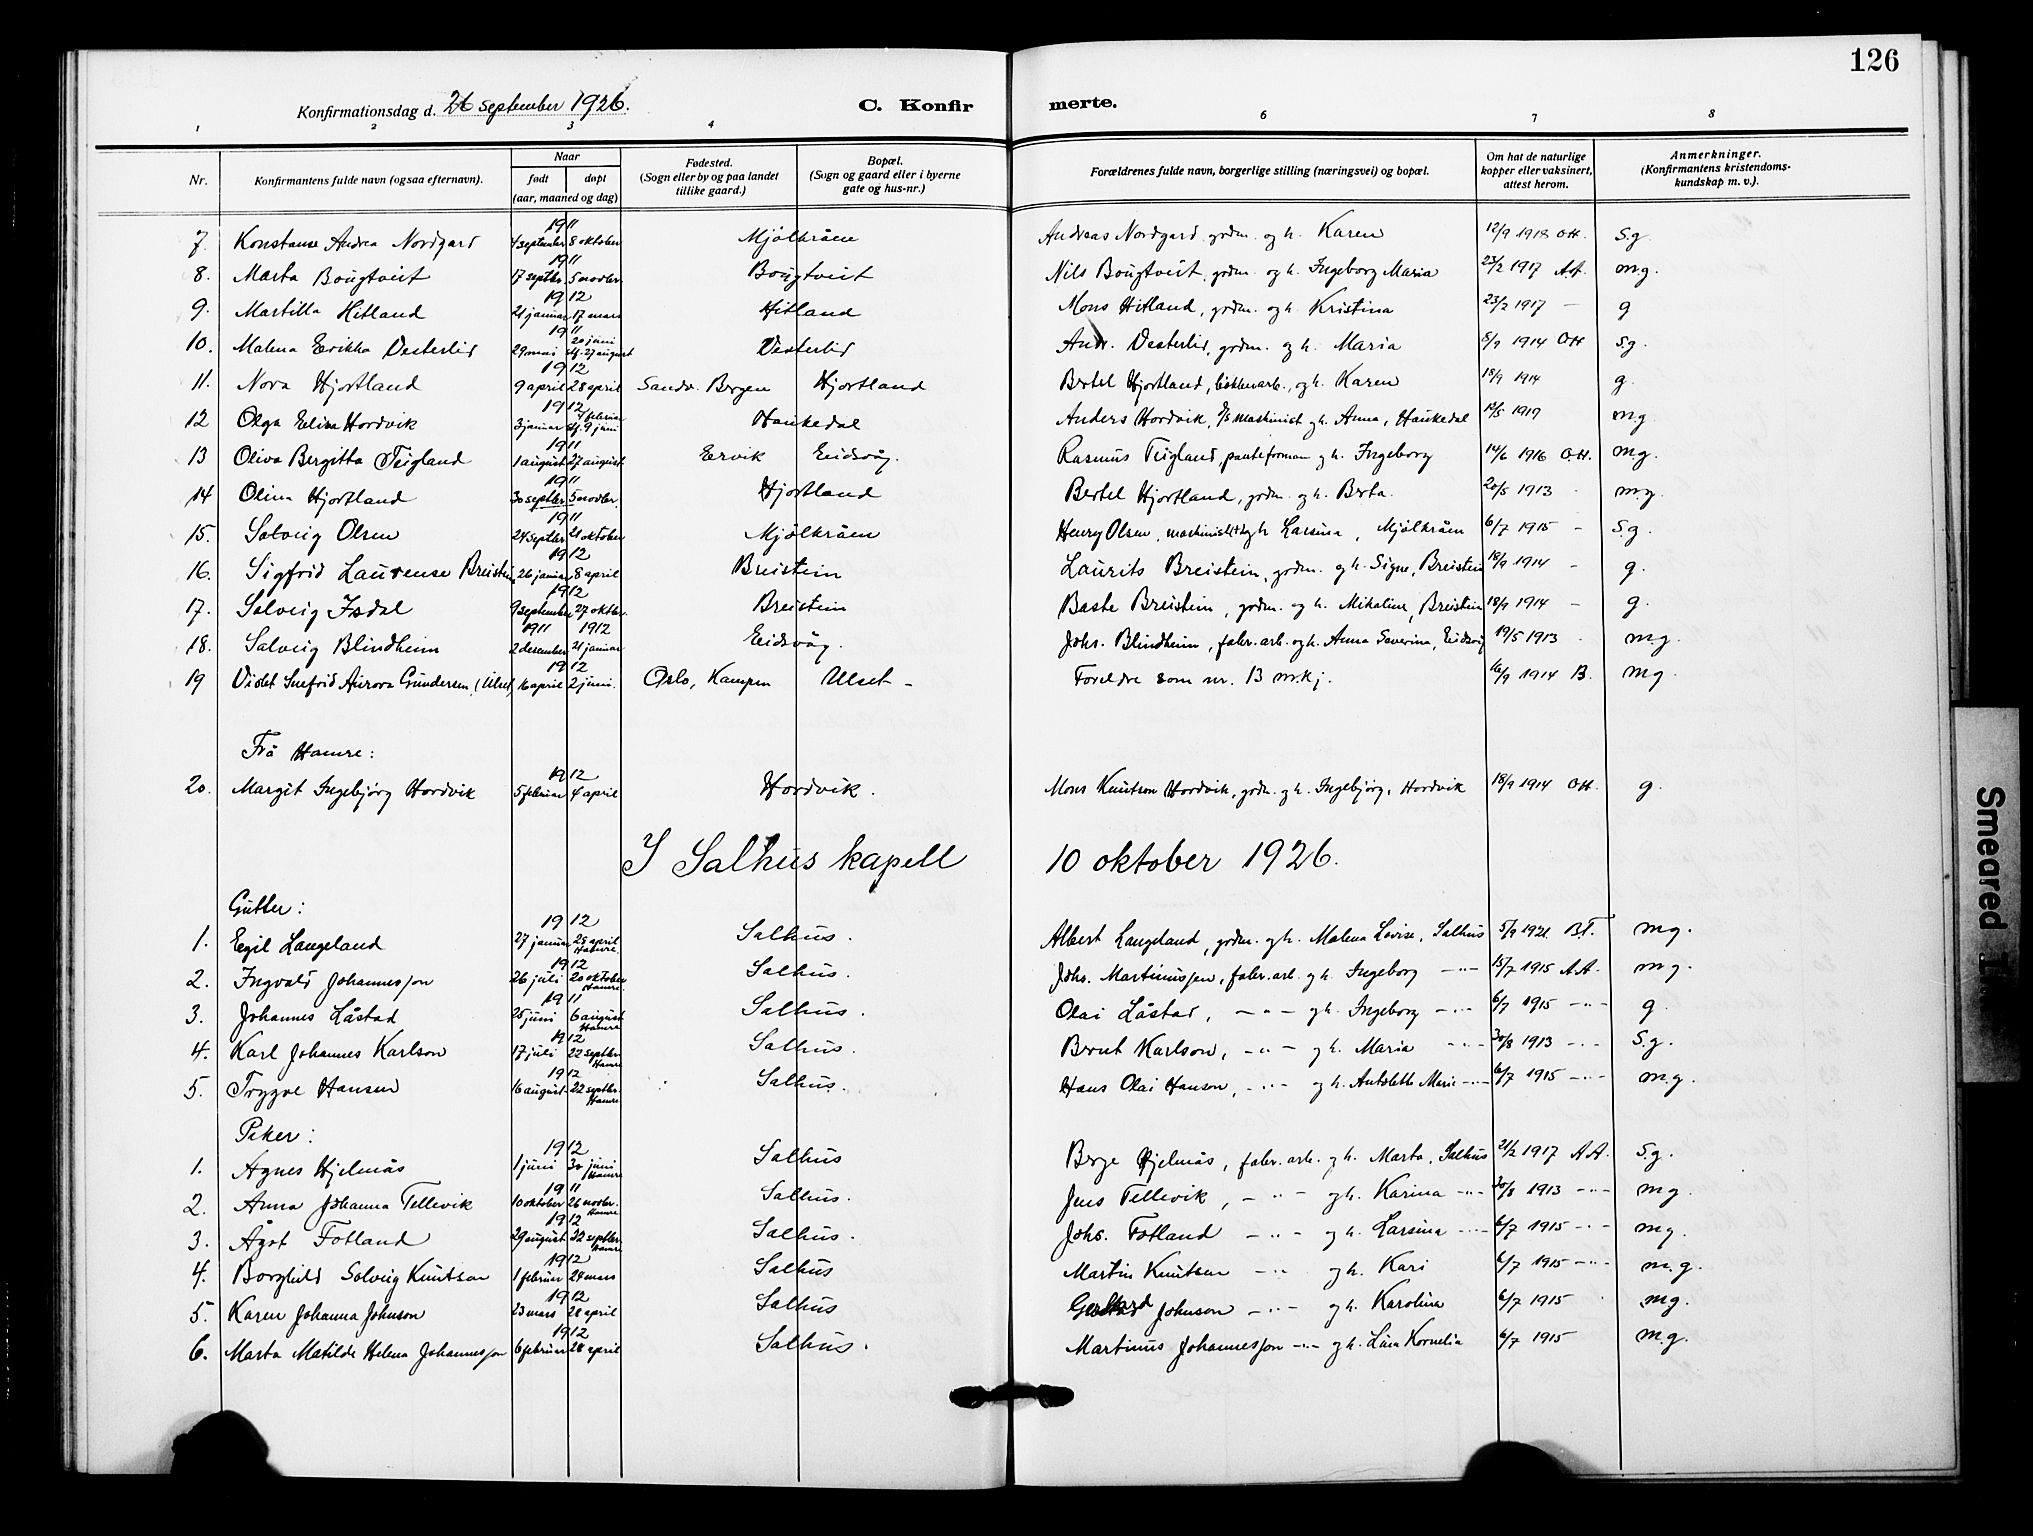 126
Konfirmationsdag d. 26 september 1926. C. Konfir merte.
1 2 3 4 6 7 8
Nr. Konfirmantens fulde navn (ogsaa efternavn). Naar født døpt (aar, maaned og dag) Fødested. (Sogn eller by og paa landet tillike gaard.) Bopæl. (Sogn og gaard eller i byerne gate og hus-nr.) Forældrenes fulde navn, borgerlige stilling (næringsvei) og bopæl. Om hat de naturlige kopper eller vaksinert, attest herom. Anmerkninger. (Konfirmantens kristendoms-kundskap m. v.).
7. Konstanse Andrea Nordgard 1911 4 september 8 oktober Mjölkråen Andreas Nordgard, grdm. og h. Karen 12/9 1918 OH. S.g.
8. Marta Bougtveit 1911 17 septbr. 5 novbr. Bougtveit Nils Bougtveit, grdm. og h. Ingeborg Maria 23/2 1917 A.A. m.g.
9. Martilla Hitland 1912 21 januar 17 mars Hitland Mons Hitland, grdm. og h. Kristina 23/2 1917 – g
10. Malena Erikka Vesterlid 1911 29 mai 20 juni stf. 27 august Vesterlid Andr. Vesterlid, grdm. og h. Maria 8/9 1914 OH S.g.
11. Nora Hjortland 1912 9 april 28 april Sandv. Bergen Hjortland Bertel Hjortland, og h. Karen 18/9 1914 g.
12 Olga Elina Hordvik 1912 3 januar 4 februar stf. 9 juni Haukedal Anders Hordvik, maskinist og h. Anna, Haukedal 12/5 1919 m.g
13 Oliva Bergitta Teigland 1911 1 august 27 august Eervik Eidsvåg. Rasmus Teigland, og h. Ingeborg 14/6 1916 O.H. m.g.
14 Olina Hjortland 1911 30 septbr 5 novbr. Hjortland Bertel Hjortland, grdm. og h. Berta. 20/5 1913 m.g.
15. Solveig Olsen 1911 24 septbr 21 oktober Mjölkråen Henry Olsen, maskinist og h Larsina, Mjölkråen 6/7 1915 – S.g.
16. Sigfrid Laurense Breistein 1912 26 januar 8 april Breistein Laurits Breistein, grdm. og h. Signe, Breistein 18/9 1914 – g.
17. Solveig Isdal 1912 9 september 27 oktbr. Breistein Baste Breistein, grdm. og h. Mikaline, Breistein 18/9 1914 – g.
18. Solveig Blindheim 1911 1912 2 desember 21 januar Eidsvåg. Johs. Blindheim, fabr. arb. og h. Anna Severina, Eidsvåg 19/5 1913 m.g.
19 Violet Snefrid Aurora Gundersen, (Ulset) 1912 16 april 2 juni. Oslo, Kampen Ulset – Foreldre som nr. 13 m.kj. 16/9 1914 B. m.g.
Frå Hamre:
20. Margit Ingebjørg Hordvik 1912 5 februar 4 april Hordvik. Mons Knutson Hordvik, grdm. og h. Ingebjørg, Hordvik 18/9 1914 OH. g.
I Salhus kapell 10 oktober 1926.
Gutter:
1. Egil Langeland 1912 27 januar 28 april Hamre. Salhus. Albert Langeland, grdm. og h. Malena Lovise, Salhus 5/9 1921 B.T. m.g.
2. Ingvald Johannesson 1912 26 juli 20 oktober Hamre. Salhus. Johs. Martinussen, fabr. arb. og h. Ingeborg –"– 15/7 1915 A.A. m.g.
3. Johannes Låstad 1911 25 juni 6 august Hamre Salhus. Olai Låstad, –"– og h. Ingeborg –"– 6/7 1915 –"– g.
4. Karl Johannes Karlson 1912 17 juli 22 septbr. Hamre Salhus. Bernt Karlson, –"– og h. Maria –"– 30/8 1913 –"– S.g.
5. Trygve Hansen 1912 16 august 22 septbr. Hamre Salhus. Hans Olai Hanson, –"– og h. Antolette Marie –"– 6/7 1915 –"– m.g.
Piker:
1. Agnes Hjelmås 1912 1 juni 30 juni Hamre Salhus Berge Hjelmås, fabr. arb. og h. Marta, Salhus 21/2 1917 A.A. S.g.
2. Anna Johanna Tellevik 1911 10 oktober 26 novbr. Hamre Salhus. Jens Tellevik, –"– og h. Karina –"– 30/8 1913 –"– m.g.
3. Ågot Fotland 1912 29 august 22 septbr. Hamre Salhus. Johs. Fotland –"– og h. Larsina –"– 6/7 1915 –"– m.g.
4. Borghild Solveig Knutson 1912 1 februar 24 mars Salhus Martin Knutsen –"– og h. Kari 6/7 1915 –"– m.g.
5. Karen Johanna Johnson 1912 23 mars 28 april Salhus Gerhard Johnson –"– og h. Karolina 6/7 1915 m.g.
6. Marta Matilde Helena Johannesson 1912 6 februar 28 april Salhus. Martinus Johannesson –"– og h. Lina Kornelia 6/7 1915 m.g.
Smeared